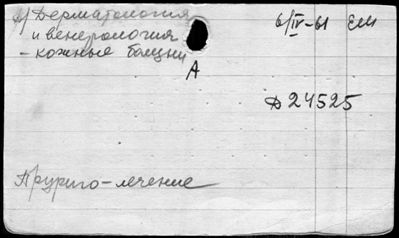 А) Дерматология
и венерология
- кожные болезни
6/IV-61 Ем
А
Д24525
Пруриго - лечение